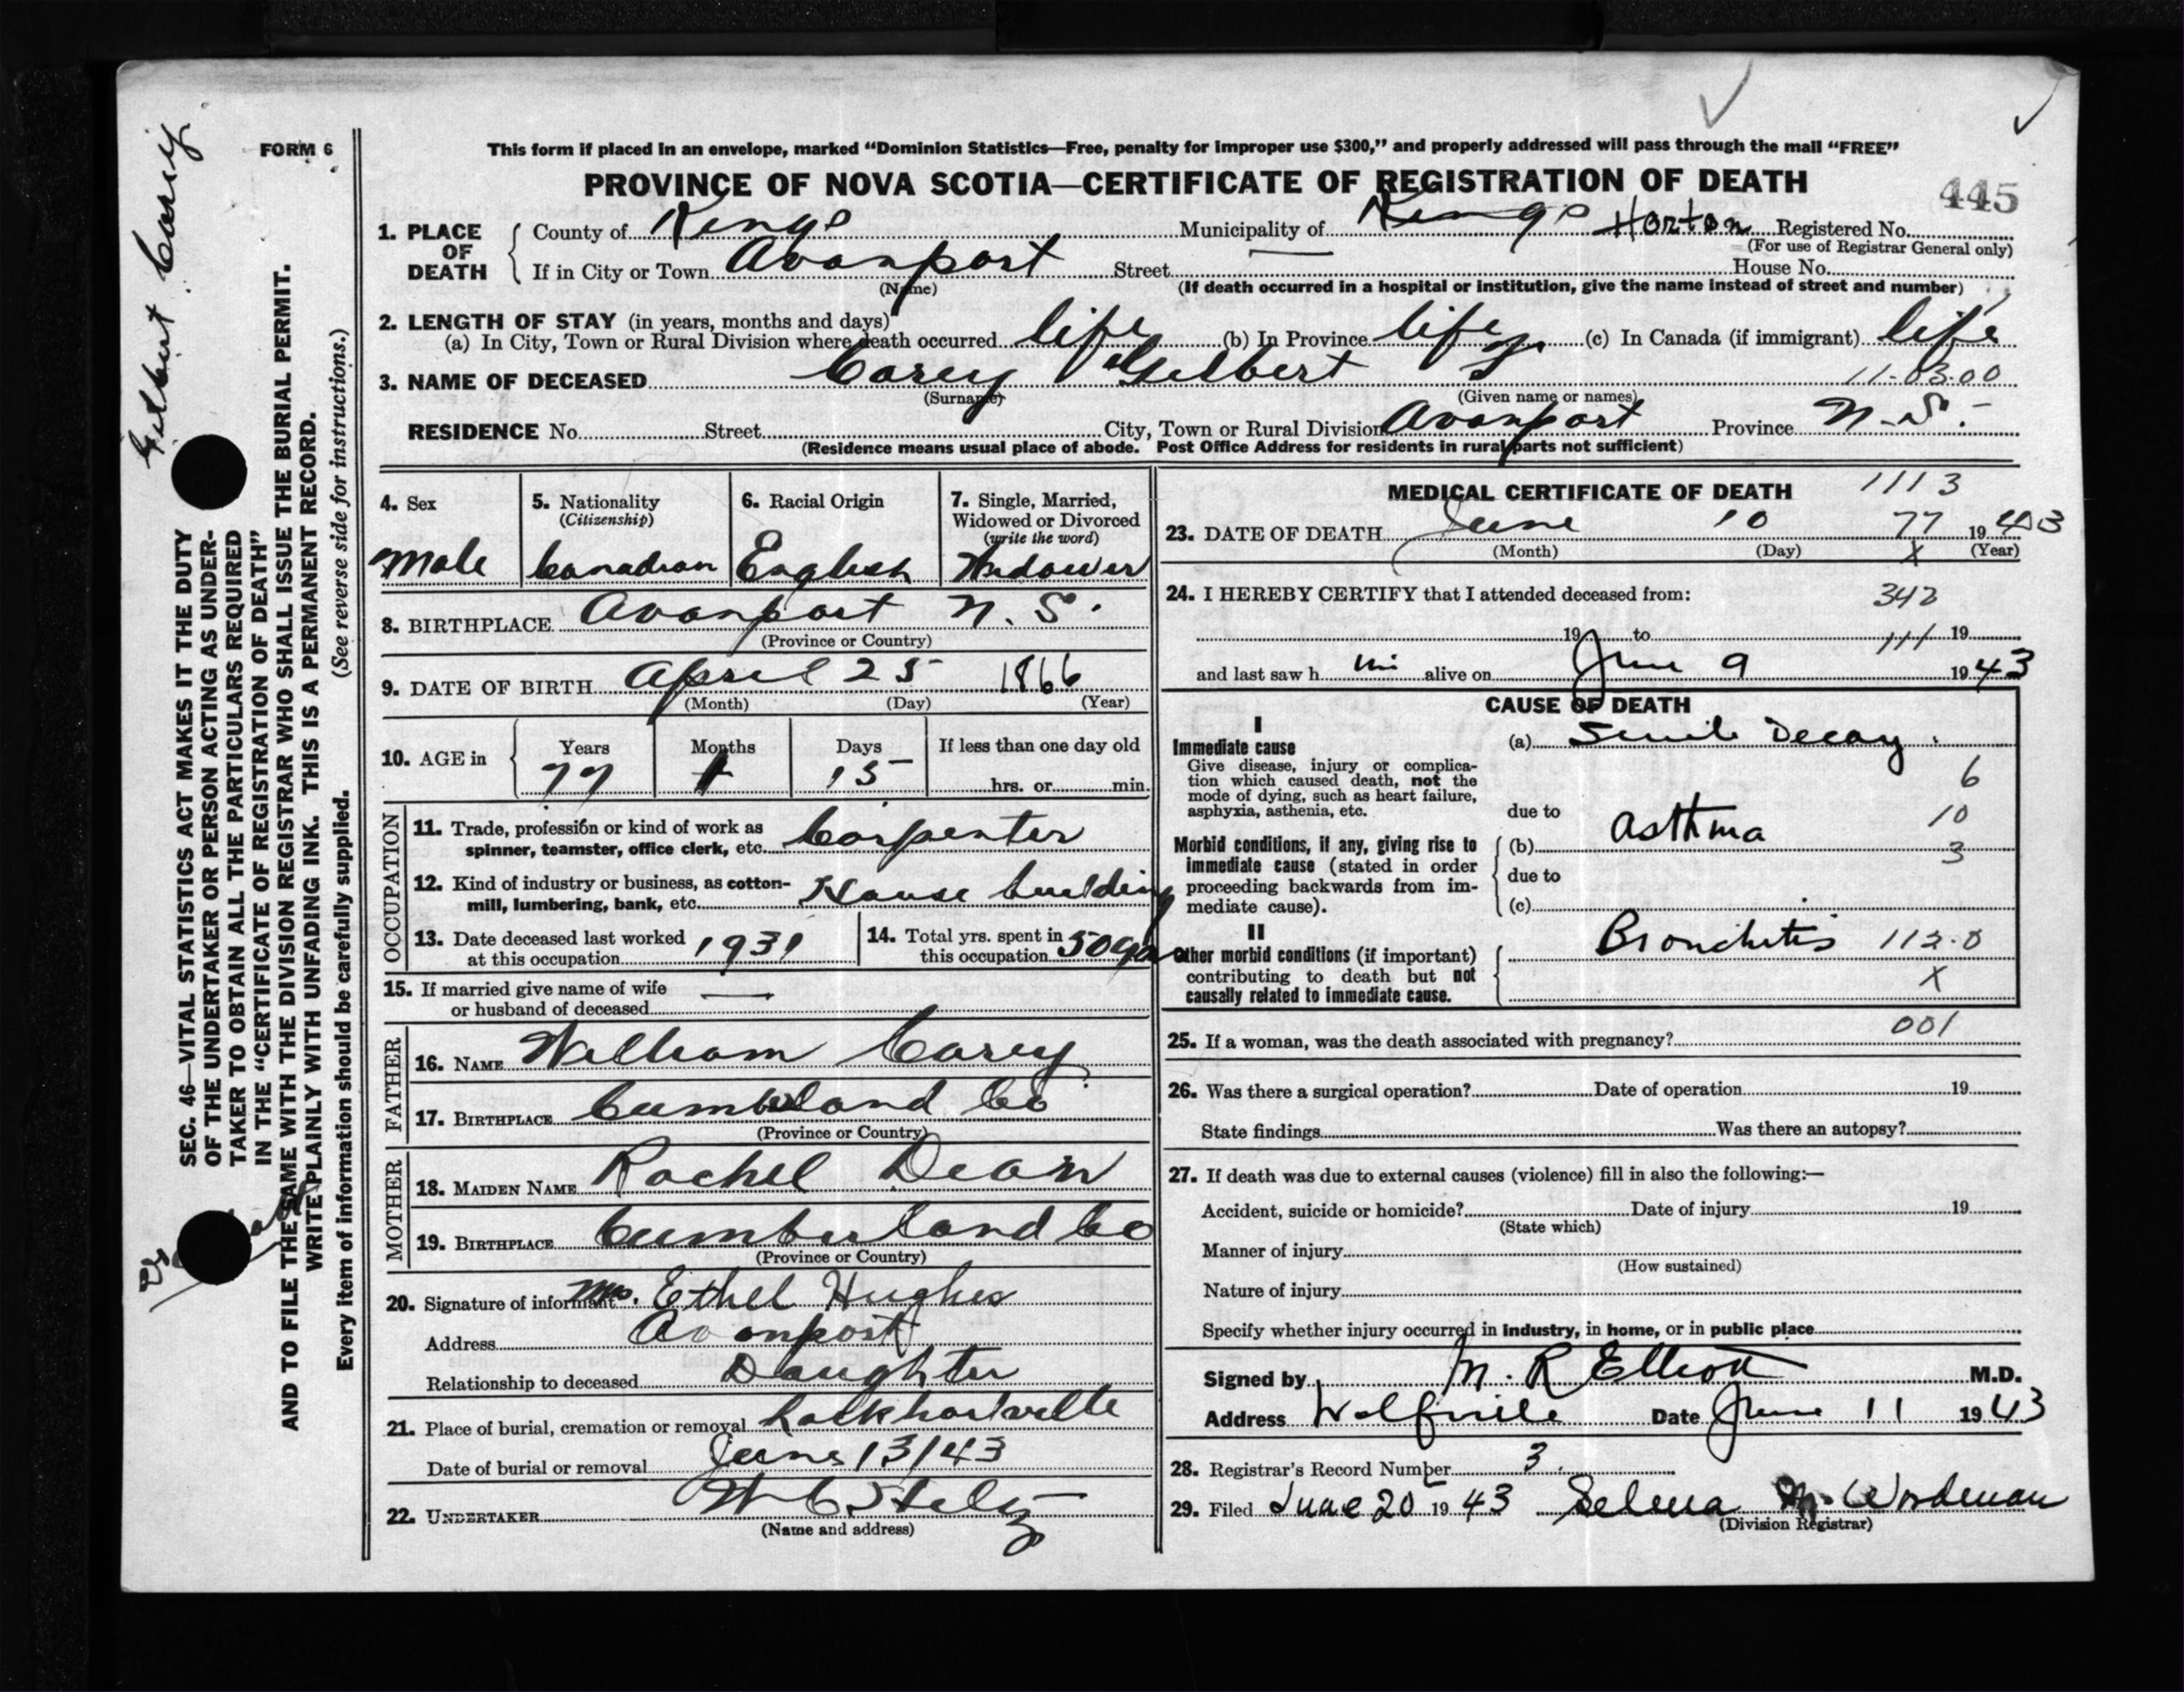 FORM 6
This form if placed in an envelope, marked “Dominion Statistics—Free, penalty for improper use $300,” and properly addressed will pass through the mail “FREE”
PROVINCE OF NOVA SCOTIA—CERTIFICATE OF REGISTRATION OF DEATH
445
1. PLACE OF DEATH County of Kings Municipality of Kings Horton Registered No.
(For use of Registrar General only)
If in City or Town Avonport Street — House No.
(Name) (If death occurred in a hospital or institution, give the name instead of street and number)
2. LENGTH OF STAY (in years, months and days)
(a) In City, Town or Rural Division where death occurred life (b) In Province life (c) In Canada (if immigrant) life
3. NAME OF DECEASED Carey Gilbert 11-03.00
(Surname) (Given name or names)
RESIDENCE No. Street City, Town or Rural Division Avonport Province N.S.
(Residence means usual place of abode. Post Office Address for residents in rural parts not sufficient)
4. Sex
Male
5. Nationality
(Citizenship)
Canadian
6. Racial Origin
English
7. Single, Married,
Widowed or Divorced
(write the word)
Widower
8. BIRTHPLACE Avonport N.S.
(Province or Country)
9. DATE OF BIRTH April 25 1866
(Month) (Day) (Year)
10. AGE in
Years Months Days If less than one day old
77 1 15 hrs. or min.
OCCUPATION
11. Trade, profession or kind of work as
spinner, teamster, office clerk, etc. Carpenter
12. Kind of industry or business, as cotton-
mill, lumbering, bank, etc. House building
13. Date deceased last worked
at this occupation 1931
14. Total yrs. spent in
this occupation 50 yrs
15. If married give name of wife
or husband of deceased —
FATHER
16. NAME William Carey
17. BIRTHPLACE Cumberland Co
(Province or Country)
MOTHER
18. MAIDEN NAME Rachel Dean
19. BIRTHPLACE Cumberland Co
(Province or Country)
20. Signature of informant Mrs. Ethel Hughes
Address Avonport
Relationship to deceased Daughter
21. Place of burial, cremation or removal Lockhartville
Date of burial or removal June 13/43
22. UNDERTAKER
(Name and address)
MEDICAL CERTIFICATE OF DEATH 1113
23. DATE OF DEATH June 10 77 1943
(Month) (Day) X (Year)
24. I HEREBY CERTIFY that I attended deceased from: 342
19 to 111 19
and last saw h im alive on June 9 1943
CAUSE OF DEATH
I
Immediate cause
Give disease, injury or complica-
tion which caused death, not the
mode of dying, such as heart failure,
asphyxia, asthenia, etc.
(a) Senile Decay.
6
due to
10
Morbid conditions, if any, giving rise to
immediate cause (stated in order
proceeding backwards from im-
mediate cause).
(b) Asthma
3
due to
(c)
II
Other morbid conditions (if important)
contributing to death but not
causally related to immediate cause.
Bronchitis 112.0
X
001
25. If a woman, was the death associated with pregnancy?
26. Was there a surgical operation? Date of operation 19
State findings Was there an autopsy?
27. If death was due to external causes (violence) fill in also the following:—
Accident, suicide or homicide? Date of injury 19
(State which)
Manner of injury
(How sustained)
Nature of injury
Specify whether injury occurred in industry, in home, or in public place
Signed by M. R Elliott M.D.
Address Wolfville Date June 11 1943
28. Registrar's Record Number 3.
29. Filed June 20 1943 Selena M. Wordman
(Division Registrar)
Gilbert Carey
SEC. 46—VITAL STATISTICS ACT MAKES IT THE DUTY
OF THE UNDERTAKER OR PERSON ACTING AS UNDER-
TAKER TO OBTAIN ALL THE PARTICULARS REQUIRED
IN THE “CERTIFICATE OF REGISTRATION OF DEATH”
AND TO FILE THE SAME WITH THE DIVISION REGISTRAR WHO SHALL ISSUE THE BURIAL PERMIT.
WRITE PLAINLY WITH UNFADING INK. THIS IS A PERMANENT RECORD.
Every item of information should be carefully supplied. (See reverse side for instructions.)